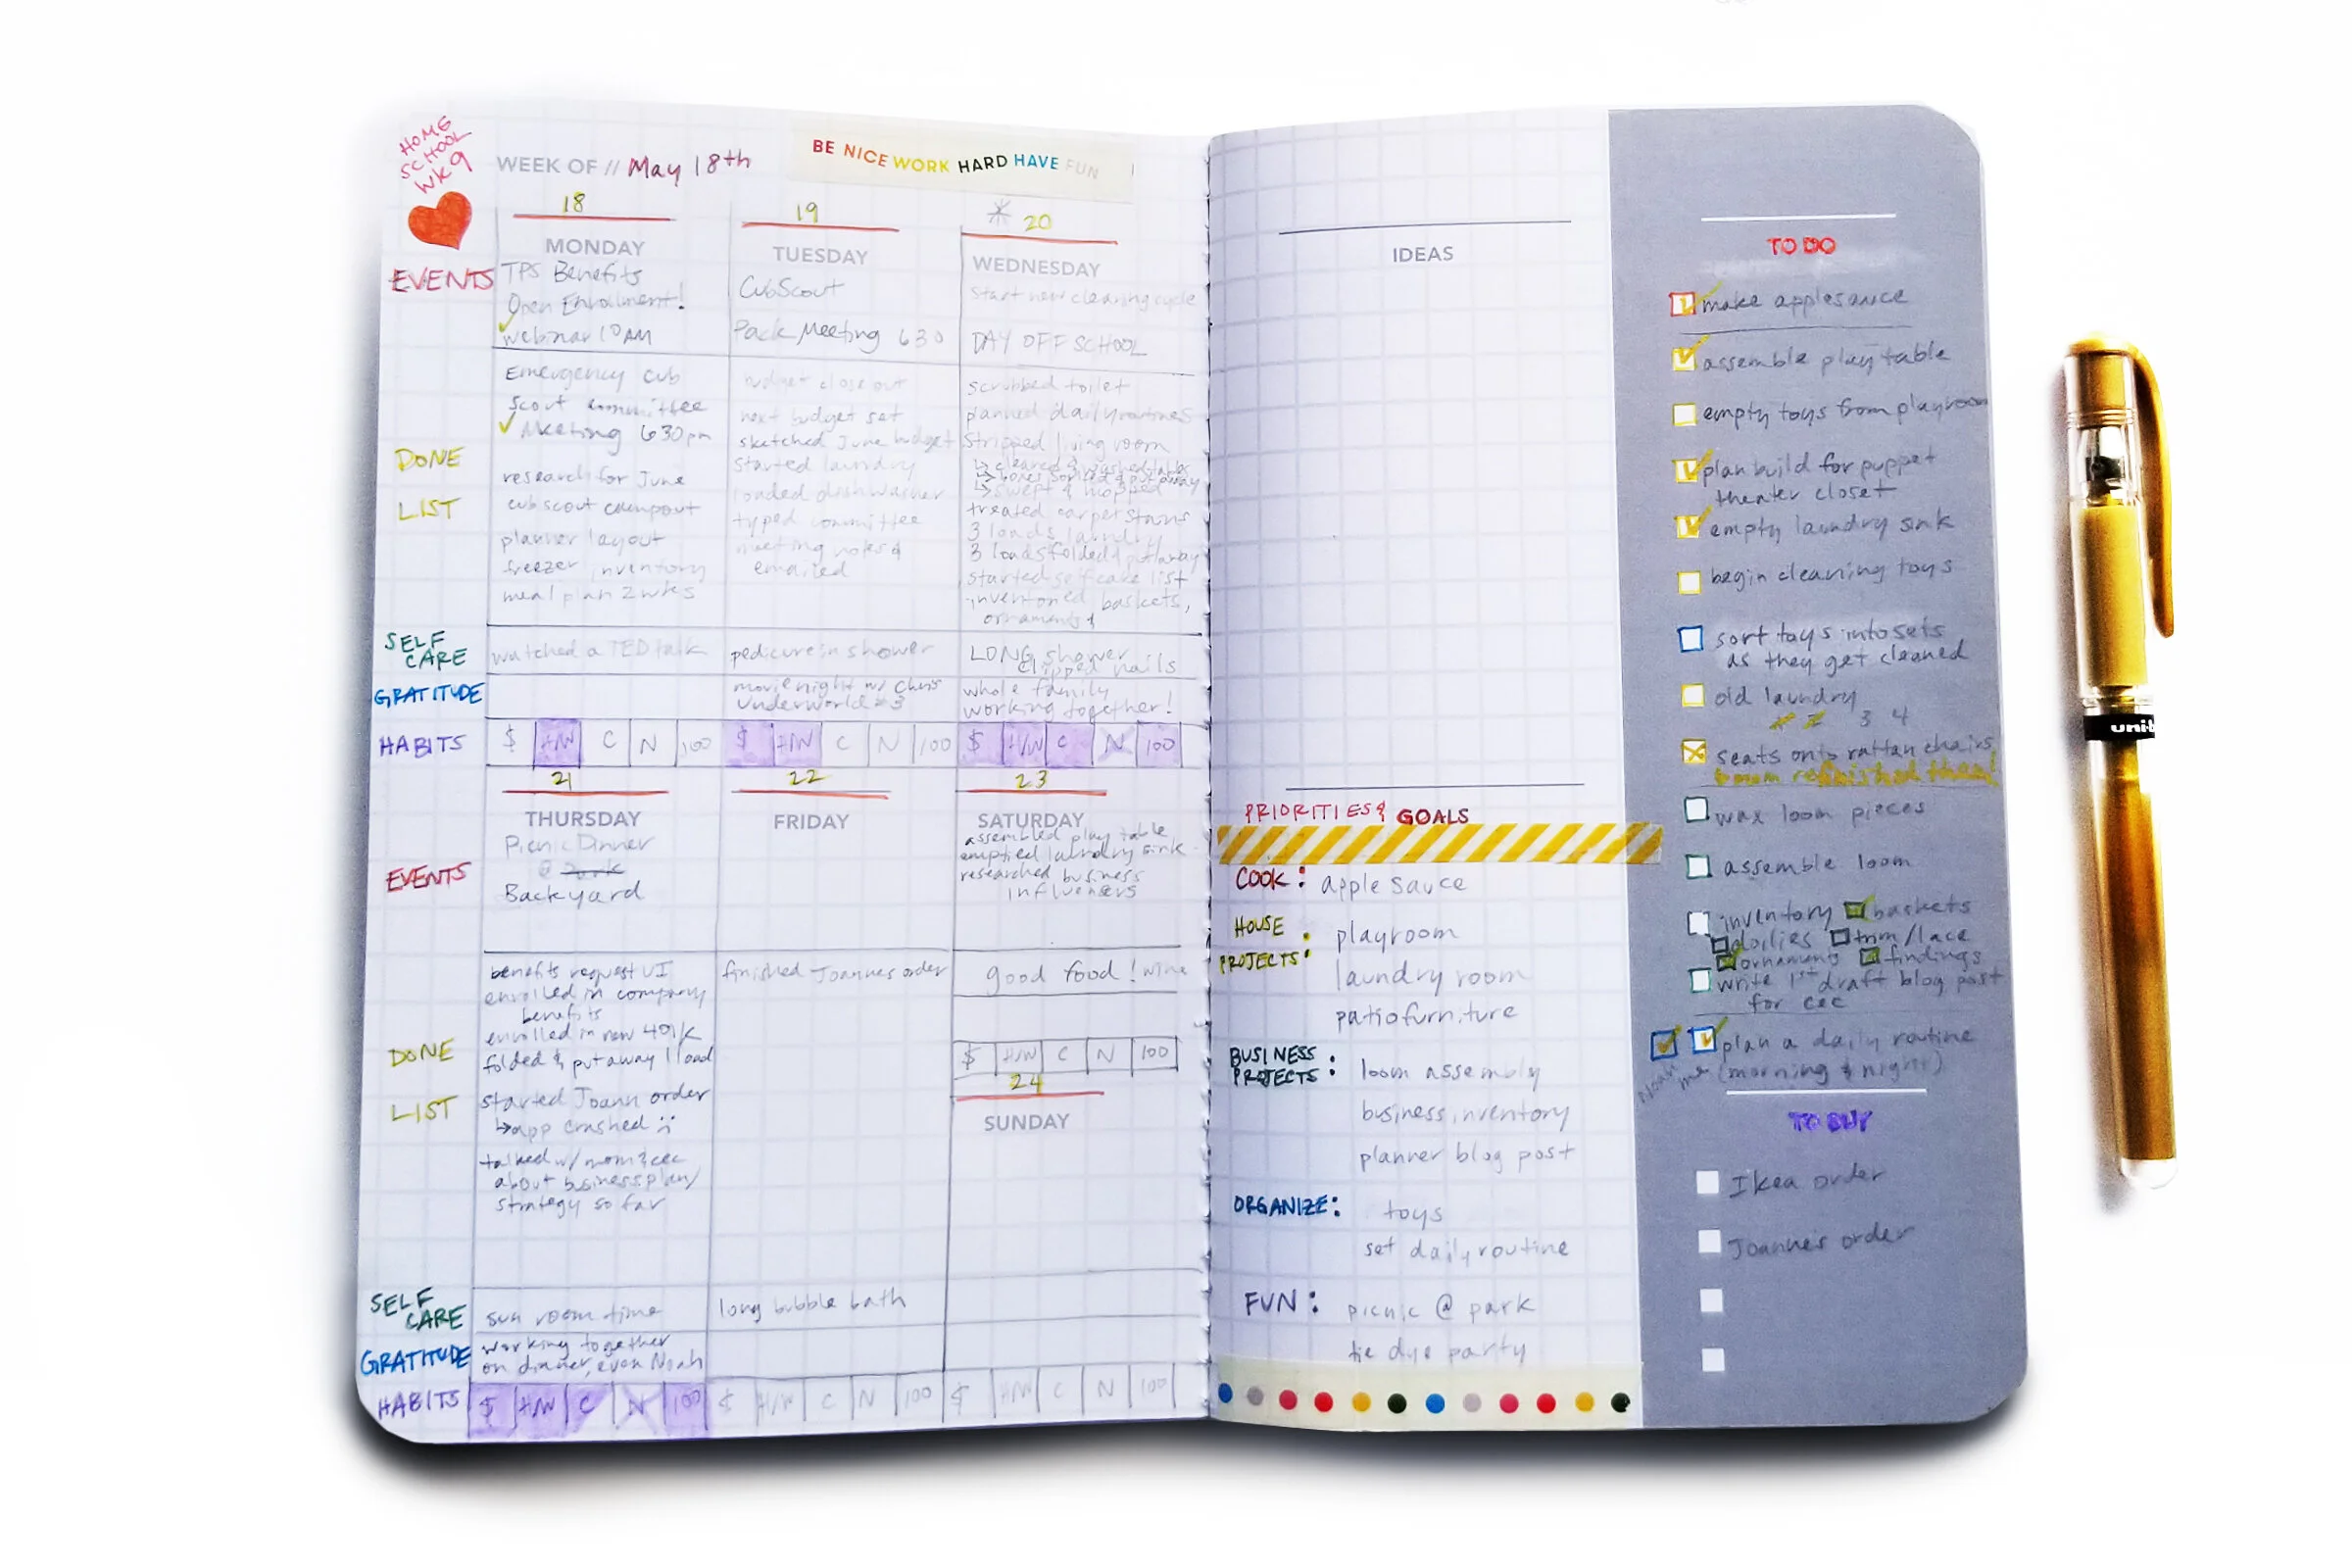 HOME
SCHOOL
WK 9
WEEK OF // May 18th
BE NICE WORK HARD HAVE FUN
18
MONDAY
EVENTS
TPS Benefits
Open Enrollment!
webinar 10 AM
Emergency cub
Scout committee
Meeting 630pm
DONE
LIST
research for June
cubscout campout
planner layout
freezer inventory
meal plan 2 wks
SELF
CARE
watched a TED talk
GRATITUDE
HABITS
$ H/W C N 100
19
TUESDAY
CubScout
Pack Meeting 630
budget close out
next budget set
sketched June budget
started laundry
loaded dishwasher
typed committee
meeting notes &
emailed
pedicure in shower
movie night w/ Chris
Underworld 3
$ H/W C N 100
20
WEDNESDAY
Start new cleaning cycle
DAY OFF SCHOOL
scrubbed toilet
planned daily routines
stripped living room
↳ swept & mopped
treated carpet stains
3 loads laundry
3 loads folded & put away
started self care list
inventoried baskets,
ornaments &
LONG shower
clipped nails
whole family
working together!
$ H/W C N 100
21
THURSDAY
EVENTS
Picnic Dinner
@ Park
Backyard
DONE
LIST
benefits request UI
enrolled in company
benefits
enrolled in new 401k
folded & put away 1 load
started Joann order
↳ app crashed
talked w/ mom & cec
about business plan/
strategy so far
SELF
CARE
sun room time
GRATITUDE
working together
on dinner, even Noah
HABITS
$ H/W C N 100
22
FRIDAY
finished Joannes order
long bubble bath
$ H/W C N 100
23
SATURDAY
assembled play table
emptied laundry sink
researched business
influencers
good food! wine
$ H/W C N 100
24
SUNDAY
$ H/W C N 100
IDEAS
PRIORITIES & GOALS
COOK: apple sauce
HOUSE
PROJECTS:
playroom
laundry room
patio furniture
BUSINESS
PROJECTS:
loom assembly
business inventory
planner blog post
ORGANIZE: toys
set daily routine
FUN: picnic @ park
tie dye party
TO DO
make applesauce
assemble play table
empty toys from playroom
plan build for puppet
theater closet
empty laundry sink
begin cleaning toys
sort toys into sets
as they get cleaned
old laundry
1 2 3 4
seats onto rattan chairs
wax loom pieces
assemble loom
inventory baskets
doilies trim/lace
ornaments findings
write 1st draft blog post
for cec
plan a daily routine
(morning & night)
Noah me
TO BUY
Ikea order
Joannes order
uni-b